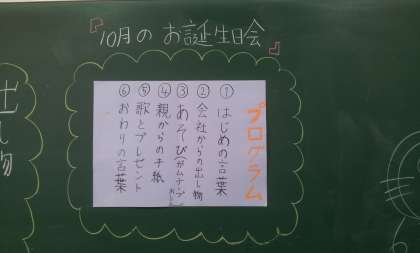 『10月のお誕生日会』
プログラム
①はじめの言葉
②会社からの出し物
③あそび(ガムテープおとし)
④親からの手紙
⑤歌とプレゼント
⑥おわりの言葉
出し物